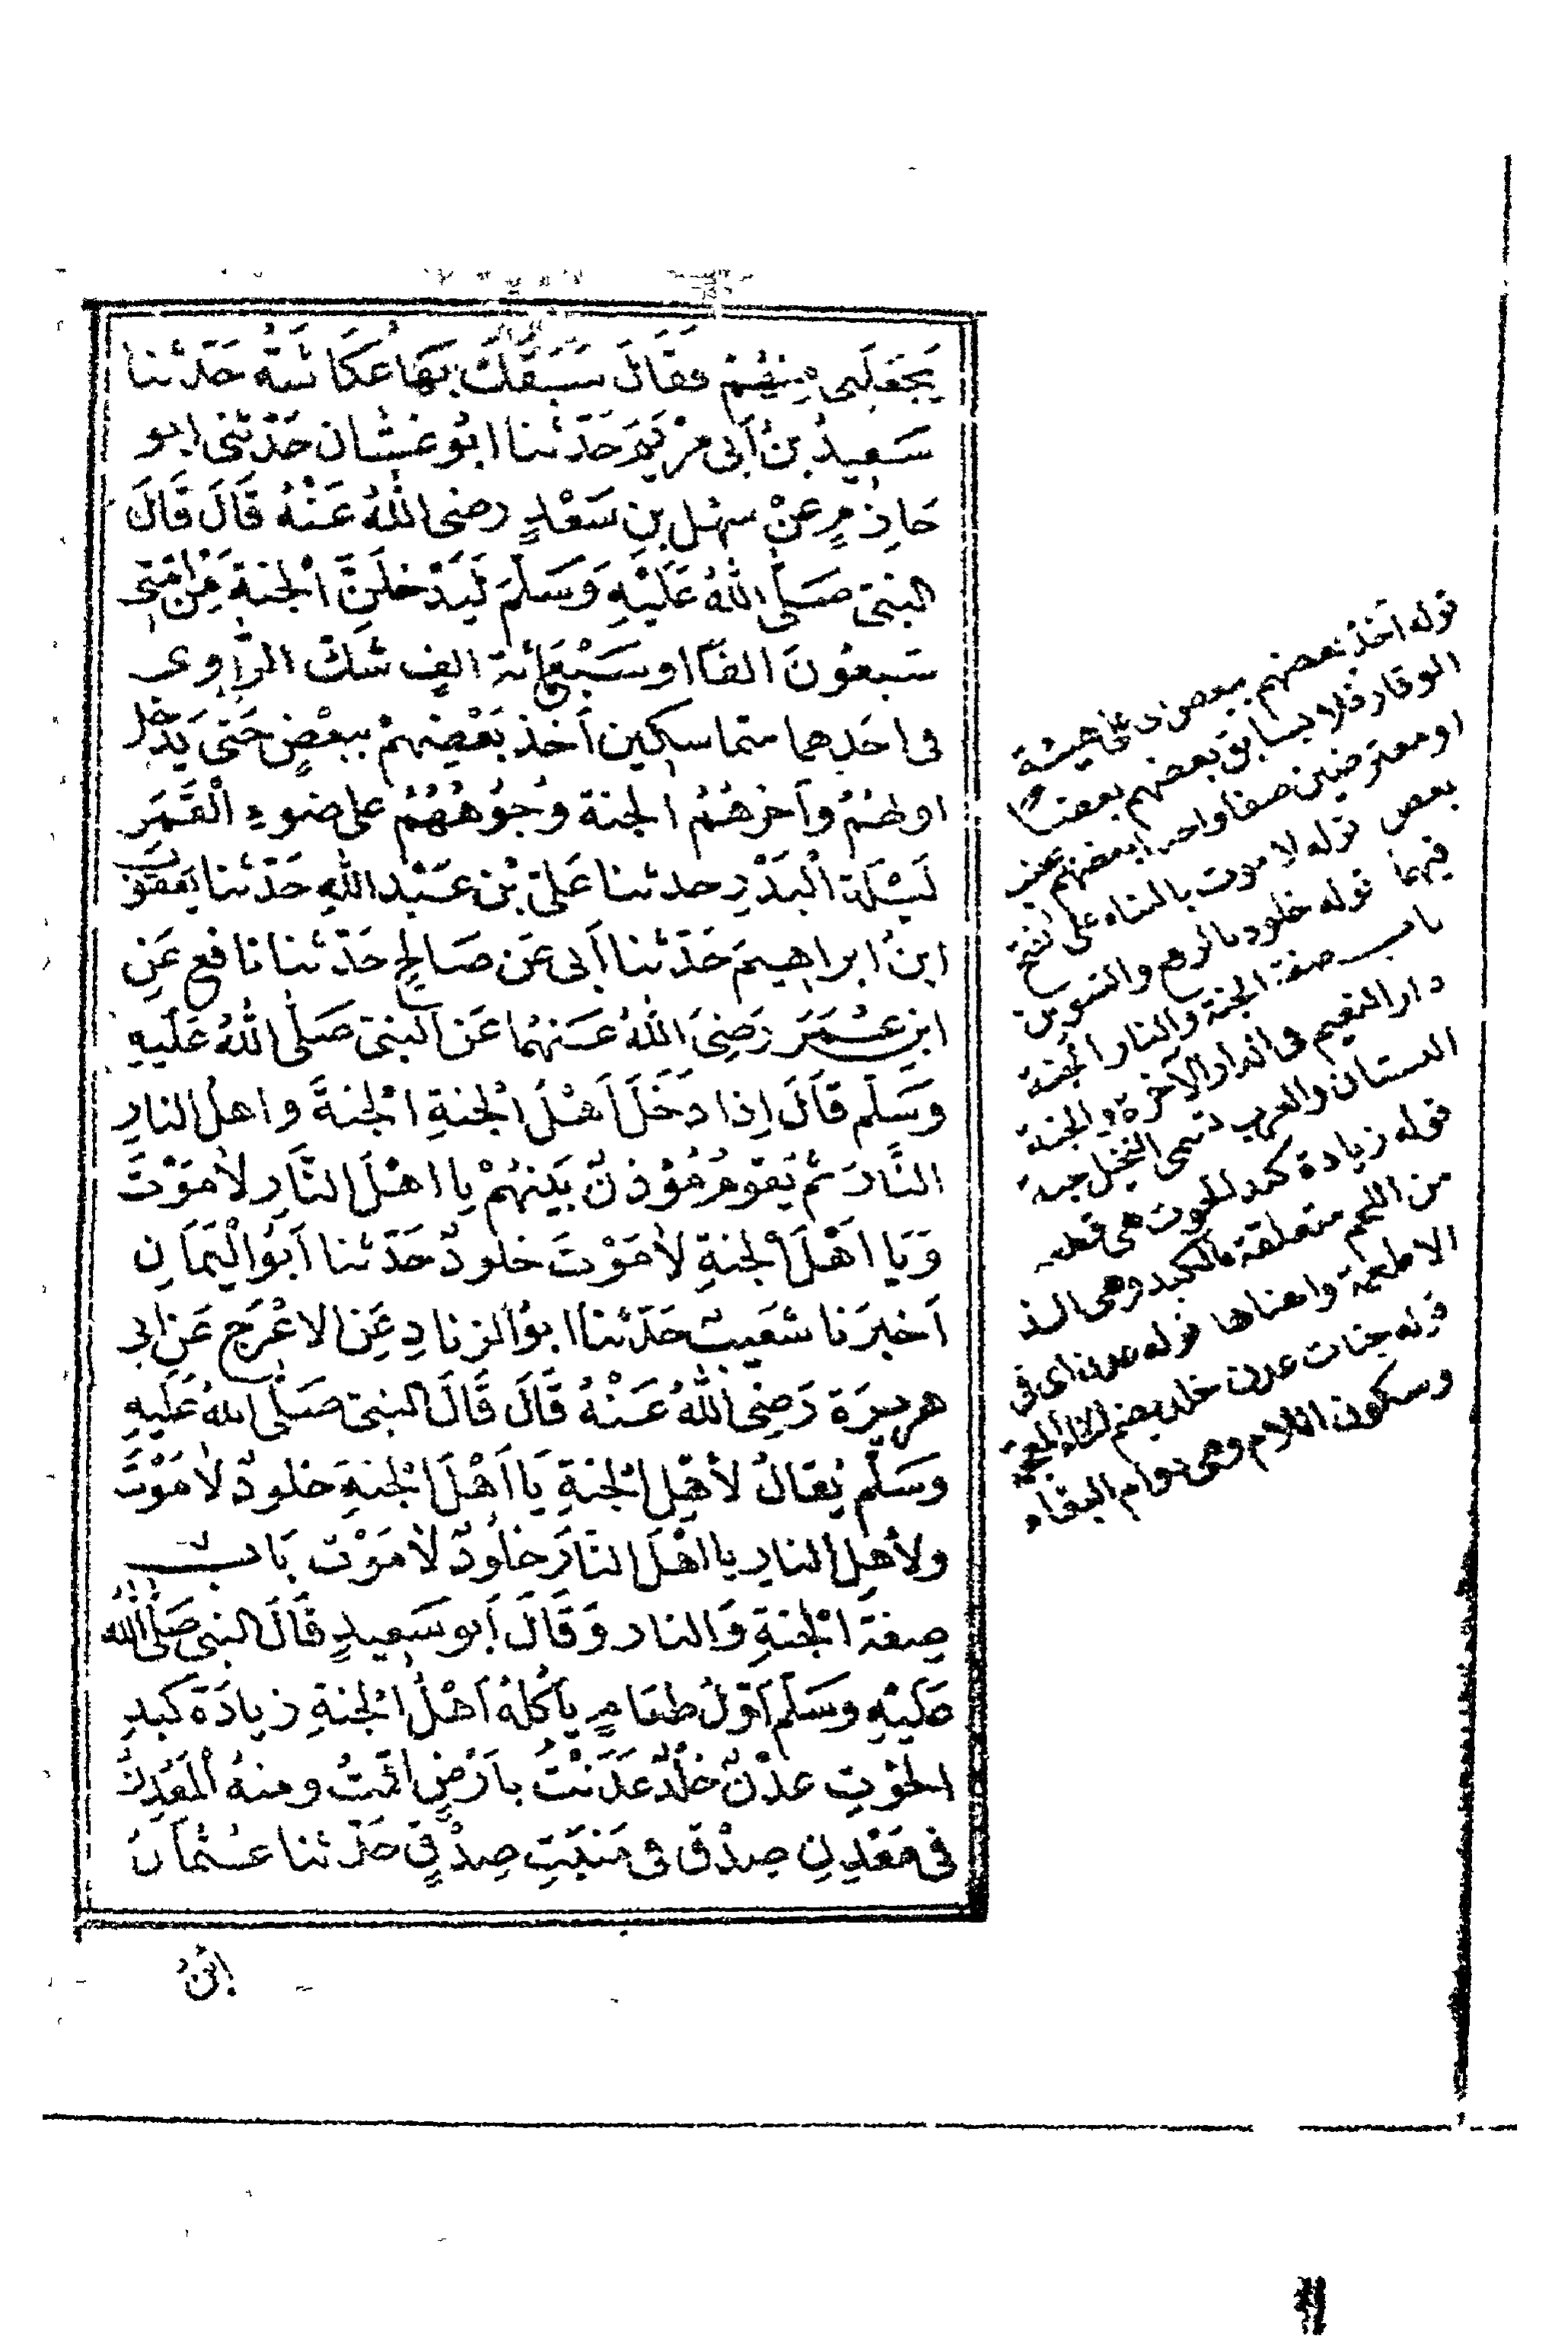 يَجْعَلَنِى مِنْهُمْ فَقَالَ سَبَقَكَ بِهَا عُكَاشَةُ حَدَّثنا
سَعِيدُ بنُ أَبى مَرْيَمَ حَدَّثنا ابُو غسَّان حَدّثنى ابو
حَازِمٍ عَنْ سهْل بنِ سَعْدٍ رضى اللهُ عَنْهُ قَالَ قَالَ
النبىّ صَلّى اللهُ عَلَيْهِ وَسَلّمَ لَيَدْخلَنّ الجنةَ مِنْ امّتى
سَبعُونَ الفًا او سَبْعُمائة الفٍ شكّ الرّاوى
فى احَدِهما متماسكِين آخذ بَعْضِهمْ ببعْضٍ حَتى يَدْخل
اولهُمْ وآخرهُمُ الجنة وَجُوْهُهُمْ على ضوءِ الْقَمَرِ
لَيْلَة الْبَدْرِ حدثنا عَلىّ بْن عَبْد اللهِ حَدّثنا يَعقوب
ابنُ ابراهِيمَ حَدّثنا أَبى عَن صَالحٍ حَدّثنا نافع عَنِ
ابنِ عُمَرَ رَضِىَ اللهُ عَنهُما عَن النبىّ صَلّى اللهُ عَلَيهِ
وَسَلّم قاَلَ اِذا دَخَلَ أَهْلُ الجنةِ الجنةَ واهلُ النارِ
النَّارَ ثم يَقومُ مُؤذنٌ بَينهُمْ يا اهْلَ النّارِ لا مَوْتَ
وَيَا اَهْلَ الجنةِ لا مَوْتَ خلودٌ حَدّثنا اَبَوُ الْيَمَانِ
اَخبرَنا شعَيبٌ حَدّثنا ابوُ الزنادِ عَنِ الاعْرَجِ عَنْ ابى
هريرَة رَضِىَ اللهُ عَنْهُ قَالَ قَالَ النبىّ صَلّى اللهُ عَلَيهِ
وَسَلّم يُقالُ لأهْلِ الجنةِ يَا اَهْلَ الجنةِ خلودٌ لا مَوْتَ
ولأهلِ النارِ يا اهْلَ النّارِ خلُودٌ لا مَوْتَ بَاب
صِفةِ الجنةِ وَالنار وَقَالَ أَبو سَعِيدٍ قَالَ النبى صَلّى اللهُ
عَلَيْهِ وسَلّم اَوّلُ طعَامٍ يأكُلهُ اَهْلُ الجنةِ زيادَة كَبدِ
الحُوْتِ عدْنٌ خُلْدٌ عَدَنْتُ باَرْضٍ اقمْتُ ومنهُ الْمَعْدِنُ
فى مَعْدِنِ صِدْقٍ فى مَنْبَتِ صِدْقٍ حَدّثنا عُثمَانُ
ابنُ
قوله آخذ بعضهم ببعض اى على هيئة
الوقار فلا يسابق بعضهم بعضا
او معترضين صفا واحدا بعضهم بجنب
بعض قوله لا موت بالبناء على الفتح
فيهما قوله خلود بالرفع والتنوين
باب صفة الجنة والنار الجنة
دار النعيم فى الدار الآخرة والجنة
البستان والعرب تسمى النخيل جنة
قوله زيادة كبد الحوت هى قطعة
من اللحم متعلقة بالكبد وهى الذ
الاطعمة واهناها قوله عدن اى فى
قوله جنات عدن خلد بضم الخاء المعجمة
وسكون اللام وهى دوام البقاء